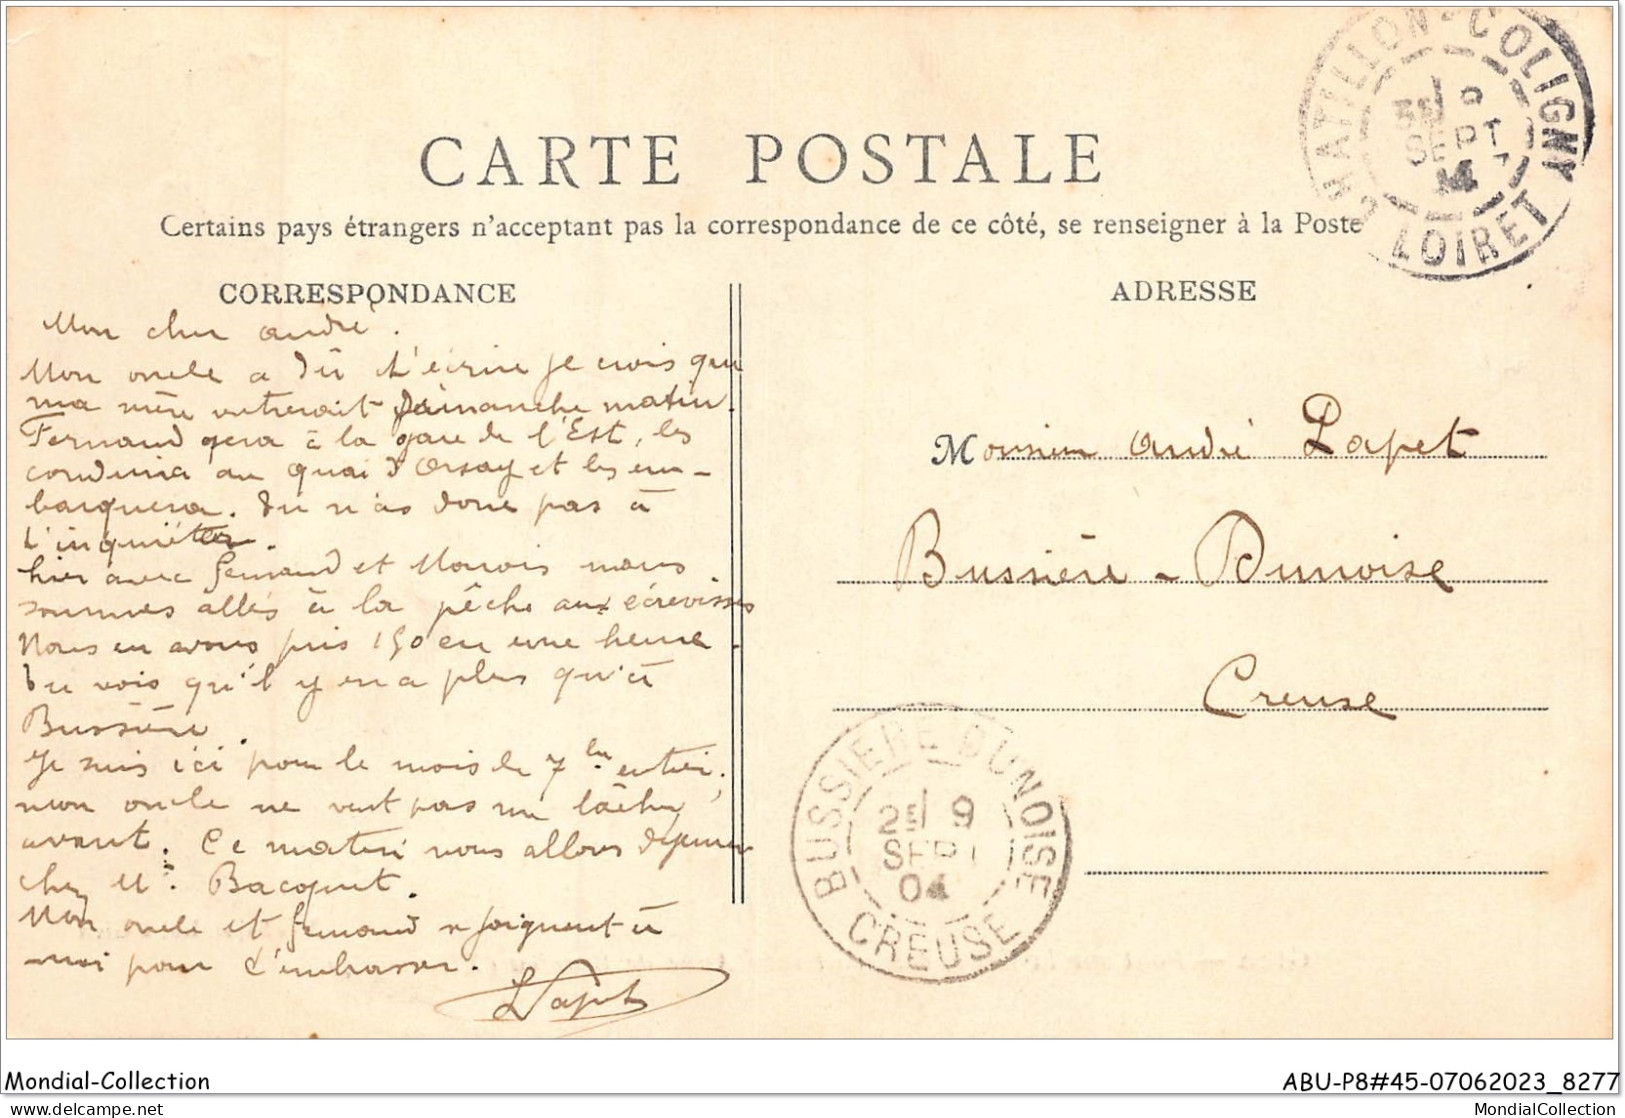 CHATILLON-COLIGNY
SEPT
LOIRET
CARTE POSTALE
Certains pays étrangers n'acceptant pas la correspondance de ce côté, se renseigner à la Poste
CORRESPONDANCE
ADRESSE
Mon cher André.
Mon oncle a dû t'écrire je crois que
ma mère rentrerait Dimanche matin.
Fernand gera à la gare de l'Est, les
conduira au Quai d'Orsay et les em-
barquera. Tu n'as donc pas à
t'inquiéter.
hier avec Fernand et nous
sommes allés à la pêche aux écrevisses
Nous en avons pris 150 en une heure.
Tu vois qu'il y en a plus qu'à
Bussière.
Je suis ici pour le mois de 7bre entier,
mon oncle ne veut pas me lâcher
avant. Ce matin nous allons déjeuner
chez Mr. Bacquet.
Mon oncle et Fernand se joignent à
moi pour t'embrasser.
L Lapet
Monsieur André Lapet
Bussière-Dunoise
Creuse
BUSSIERE DUNOISE
2E 9
SEPT
04
CREUSE
Mondial-Collection
ABU-P8#45-07062023_8277
www.delcampe.net
MondialCollection